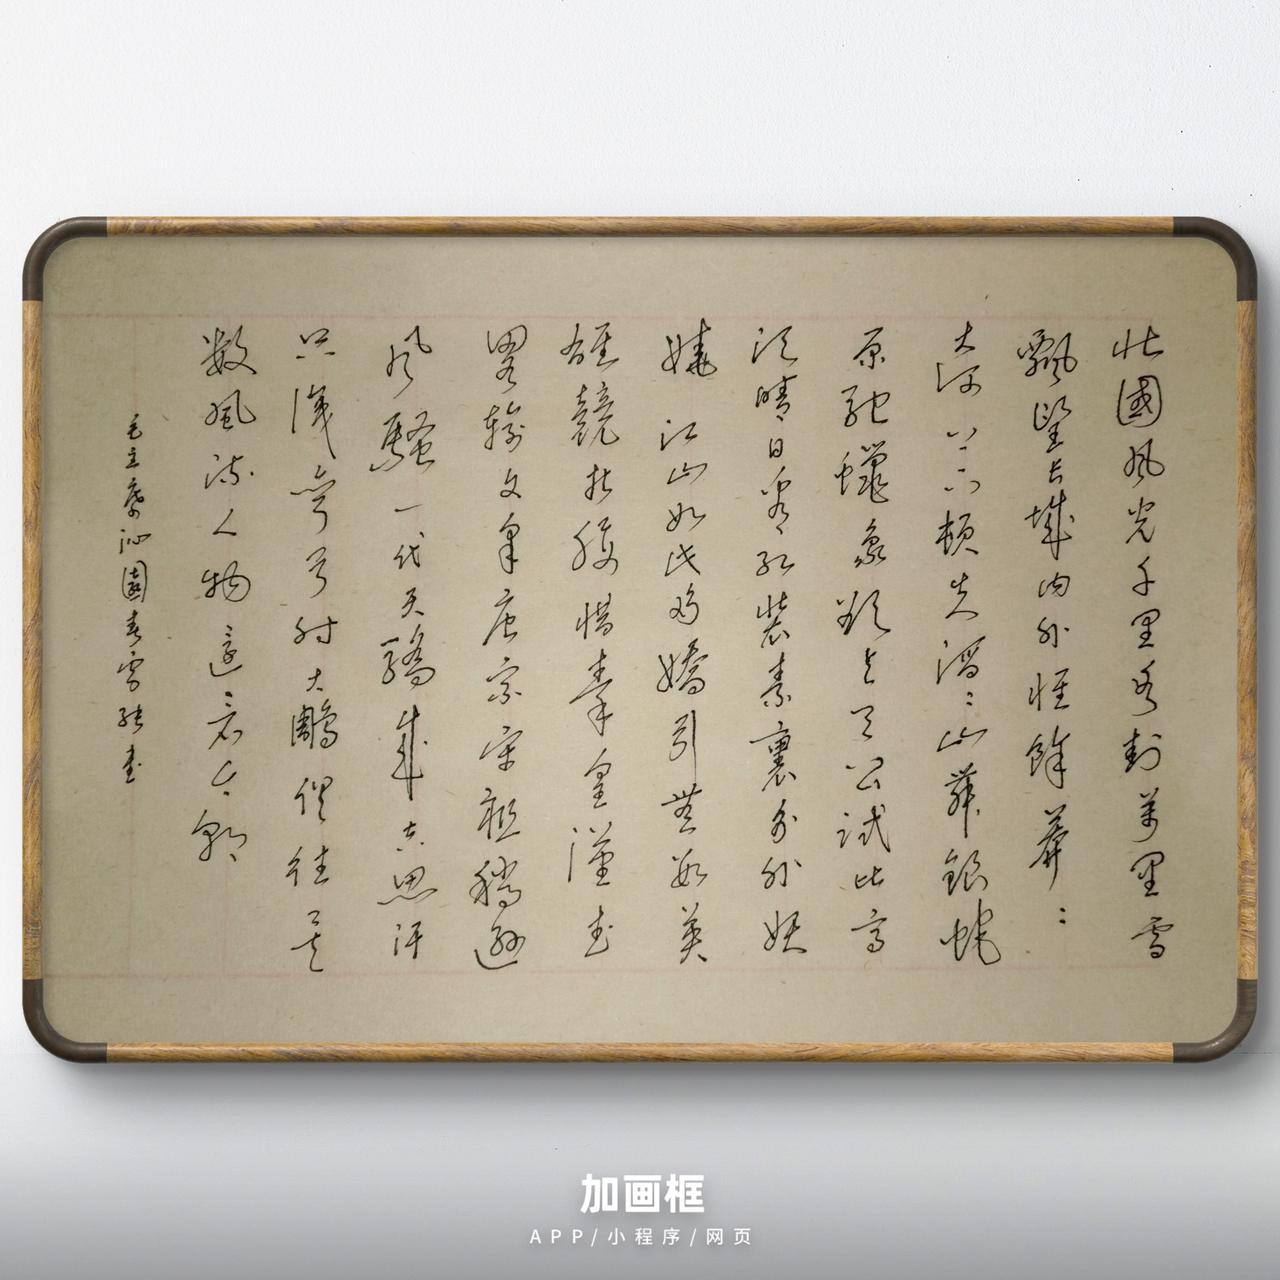 北國風光千里冰封萬里雪
飄望長城內外惟餘莽〻
大河上下頓失滔〻山舞銀蛇
原馳蠟象欲與天公試比高
須晴日看紅裝素裹分外妖
嬈 江山如此多嬌引無數英
雄競折腰惜秦皇漢武
略輸文采唐宗宋祖稍遜
風騷一代天驕成吉思汗
只識彎弓射大鵰俱往矣
數風流人物還看今朝
毛主席沁園春雪 書
加画框
APP/小程序/网页